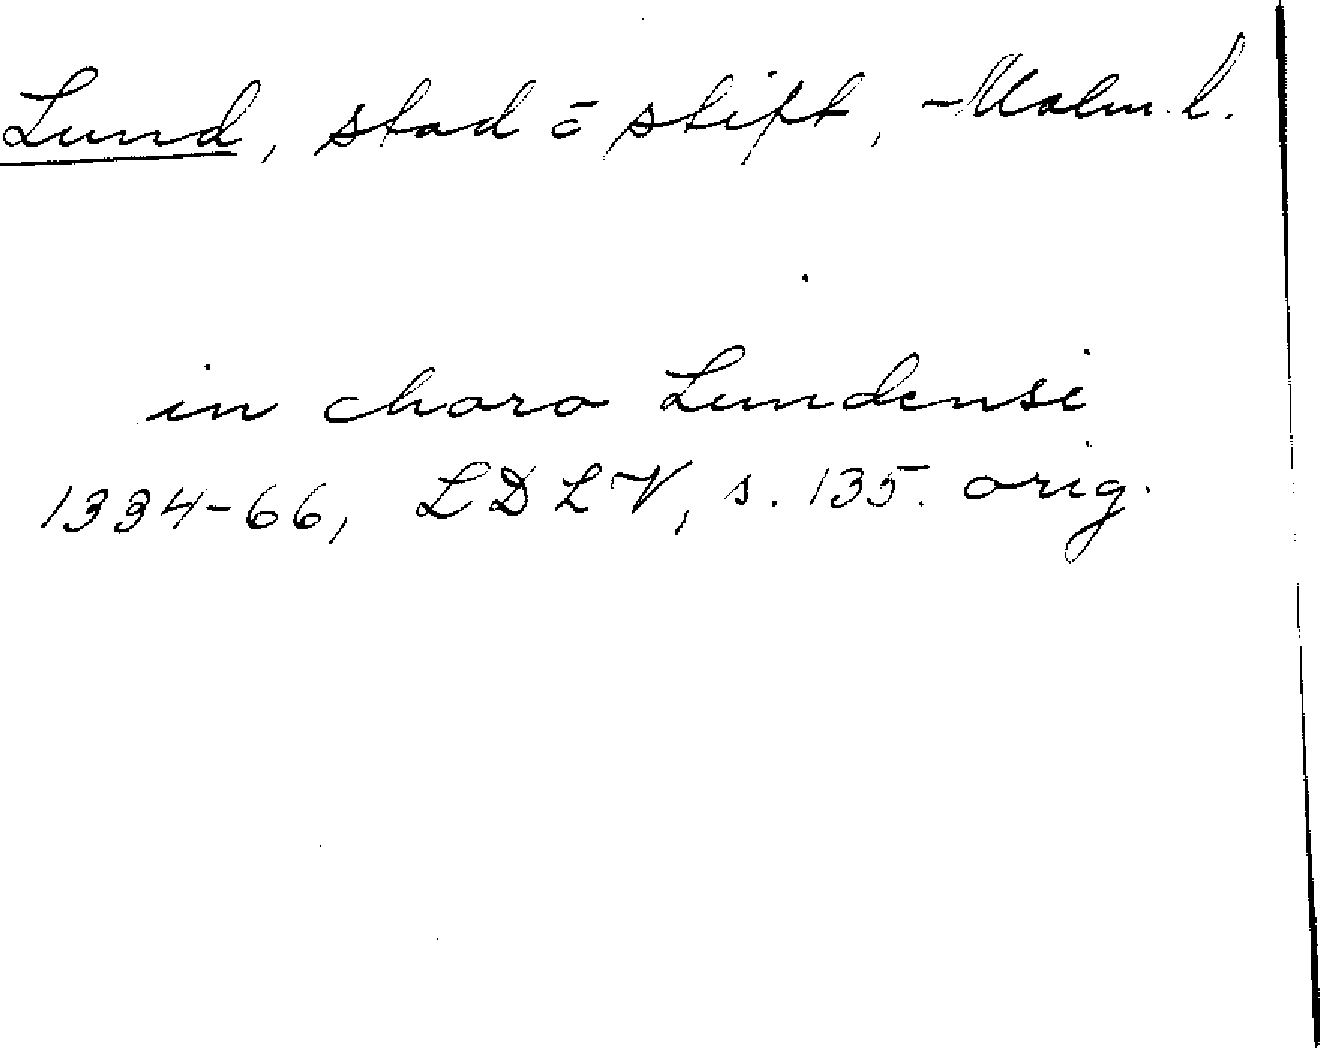 Lund, stad o stift, Malm. l.
in choro Lundensi
1334-66, LDLV, s. 135. orig.